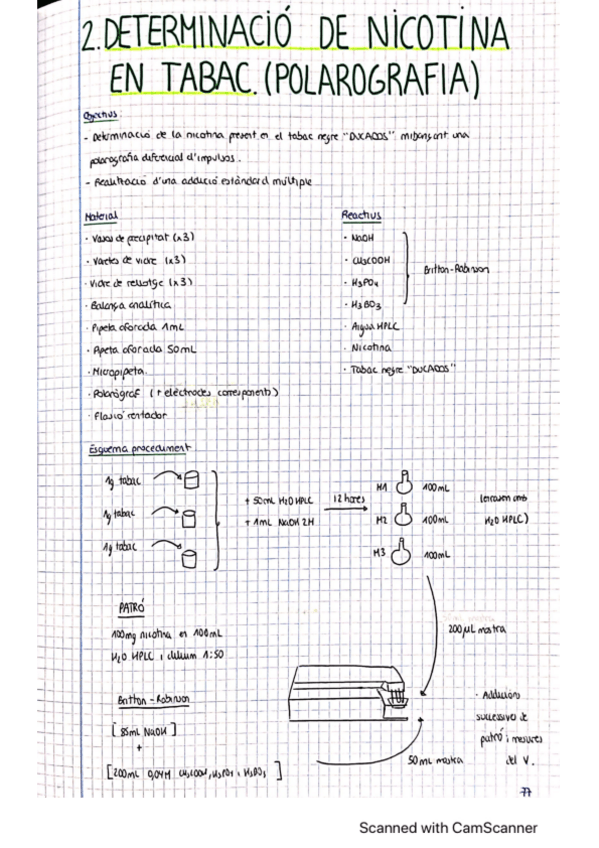 2. DETERMINACIÓ DE NICOTINA
EN TABAC. (POLAROGRAFIA)
Objectius:
- Determinació de la nicotina present en el tabac negre "DUCADOS" mitjançant una
polarografia diferencial d'impulsos.
- Realització d'una addició estàndard múltiple
Material
· Vasos de precipitat (x3)
· Varetes de vidre (x3)
· Vidre de rellotge (x3)
· Balança analítica
· Pipeta aforada 1mL
· Pipeta aforada 50mL
· Micropipeta.
· Polarògraf (+ elèctrodes corresponents)
· Flascó rentador
Reactius
· NaOH
· CH3COOH
· H3PO4
· H3BO3
Britton-Robinson
· Aigua HPLC
· Nicotina
· Tabac negre "DUCADOS"
Esquema procediment
1g tabac
1g tabac
1g tabac
+ 50mL H2O HPLC
+ 1mL NaOH 2M
12 hores
M1 100mL
M2 100mL
M3 100mL
(enrasem amb
H2O HPLC)
PATRÓ
100mg nicotina en 100mL
H2O HPLC i diluïm 1:50
200µL mostra
Britton-Robinson
[85mL NaOH]
+
[200mL 0,04M CH3COOH, H3PO4 i H3BO3]
50mL mostra
· Addicions
successives de
patró i mesures
del V.
77
Scanned with CamScanner